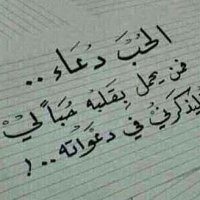 الحُبّ دُعَاء ..
فمن يحمل بِقَلبُه حُبَاً ليْ
ليَذكرنيْ في دعَوَاتُه .. !